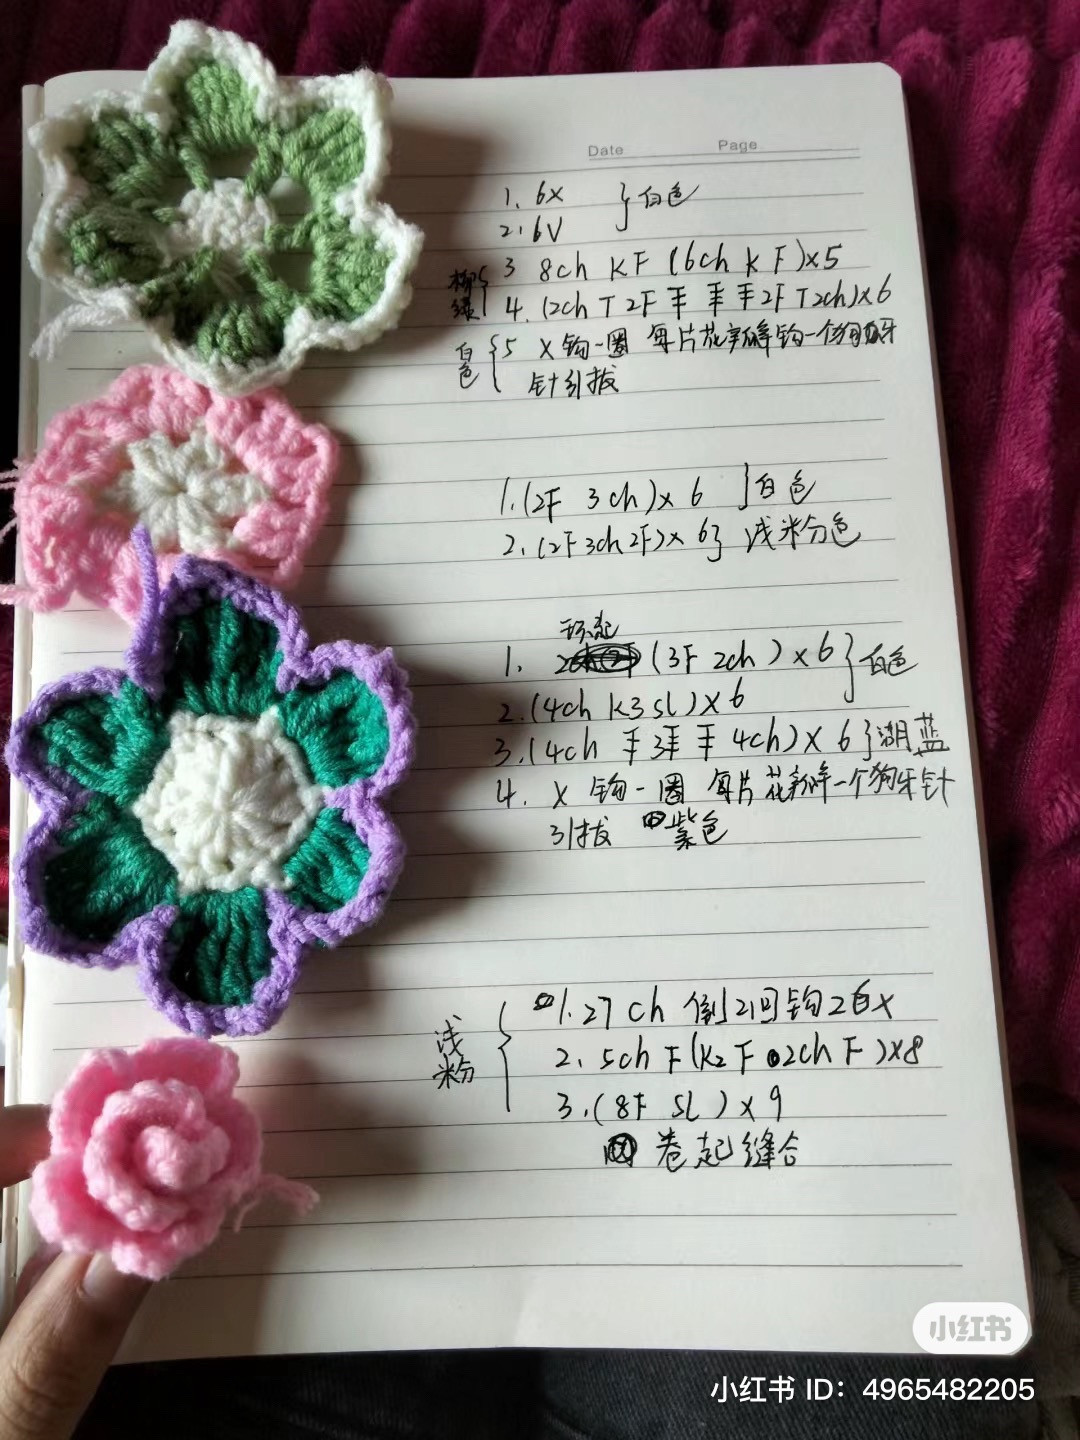 Date Page
1. 6X } 白色
2. 6V
柳绿 { 3 8ch KF (6ch K F)×5
4. (2ch T 2F 丰 丰 丰 2F T 2ch)×6
白色 { 5 X 钩一圈 每片花瓣钩一个狗牙
针引拔
1. (2F 3ch)×6 } 白色
2. (2F 3ch 2F)×6 } 浅米分色
环起
1. (3F 2ch)×6 } 白色
2. (4ch K3 sl)×6
3. (4ch 丰 3丰 丰 4ch)×6 } 湖蓝
4. X 钩一圈 每片花瓣一个狗牙针
引拔 紫色
浅粉 { 1. 27ch 倒2回钩26X
2. 5ch F(K2 F 2ch F)×8
3. (8F SL)×9
卷起缝合
小红书
小红书 ID：4965482205